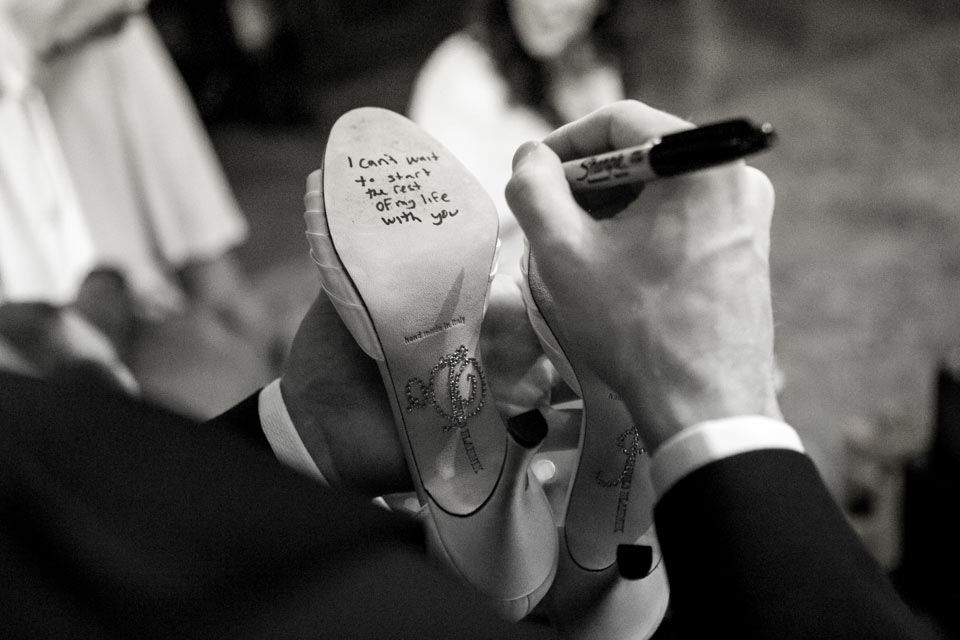 I can't wait
to start
the rest
of my life
with you
hand made in Italy
Sharpie